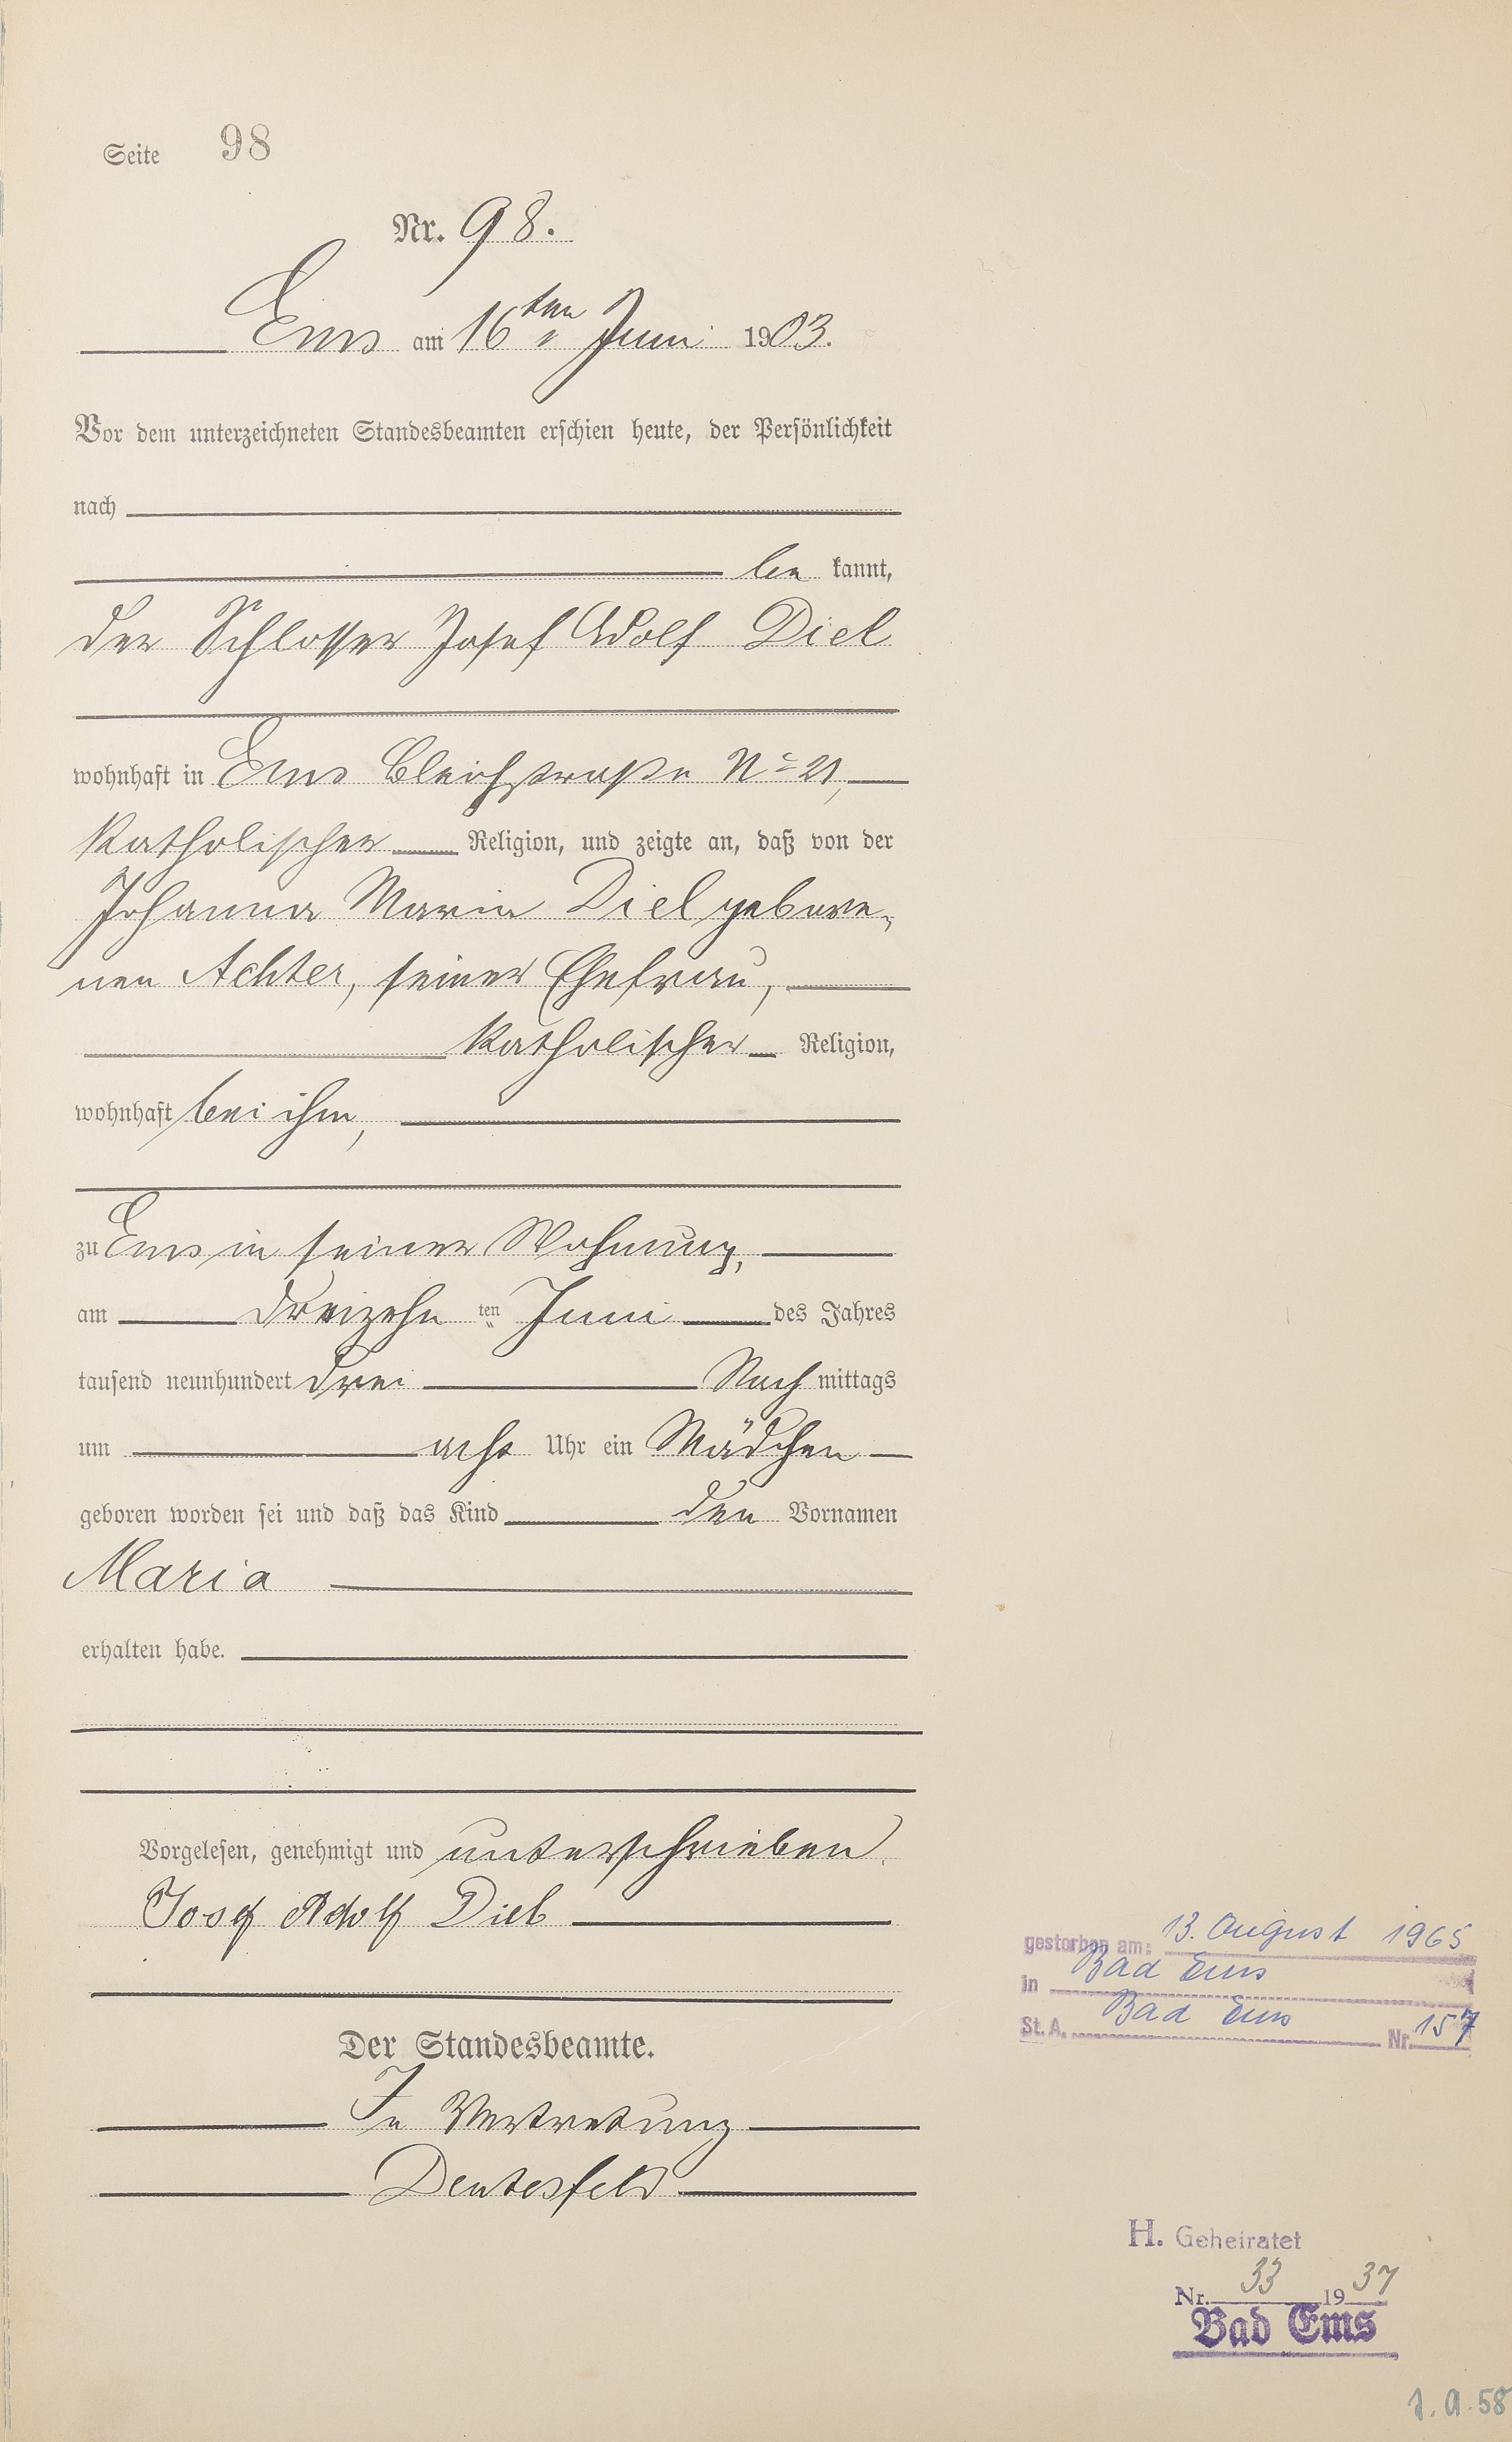 Seite 98
Nr. 98.
Ems am 16ten Juni 1903.
Vor dem unterzeichneten Standesbeamten erschien heute, der Persönlichkeit
nach
be kannt,
der Schlosser Josef Adolf Diel
wohnhaft in Ems Bleichstraße No 21,
katholischer Religion, und zeigte an, daß von der
Johanna Maria Diel gebore-
nen Achter, seiner Ehefrau,
katholischer Religion,
wohnhaft bei ihm,
zu Ems in seiner Wohnung,
am dreizehn ten Juni des Jahres
tausend neunhundert drei Nach mittags
um acht Uhr ein Mädchen
geboren worden sei und daß das Kind den Vornamen
Maria
erhalten habe.
Vorgelesen, genehmigt und unterschrieben.
Josef Adolf Diel
Der Standesbeamte.
In Vertretung
Deutesfeld
gestorben am: 13. August 1965
in Bad Ems
St. A. Bad Ems Nr. 157
H. Geheiratet
Nr. 33 1937
Bad Ems
1.a.58